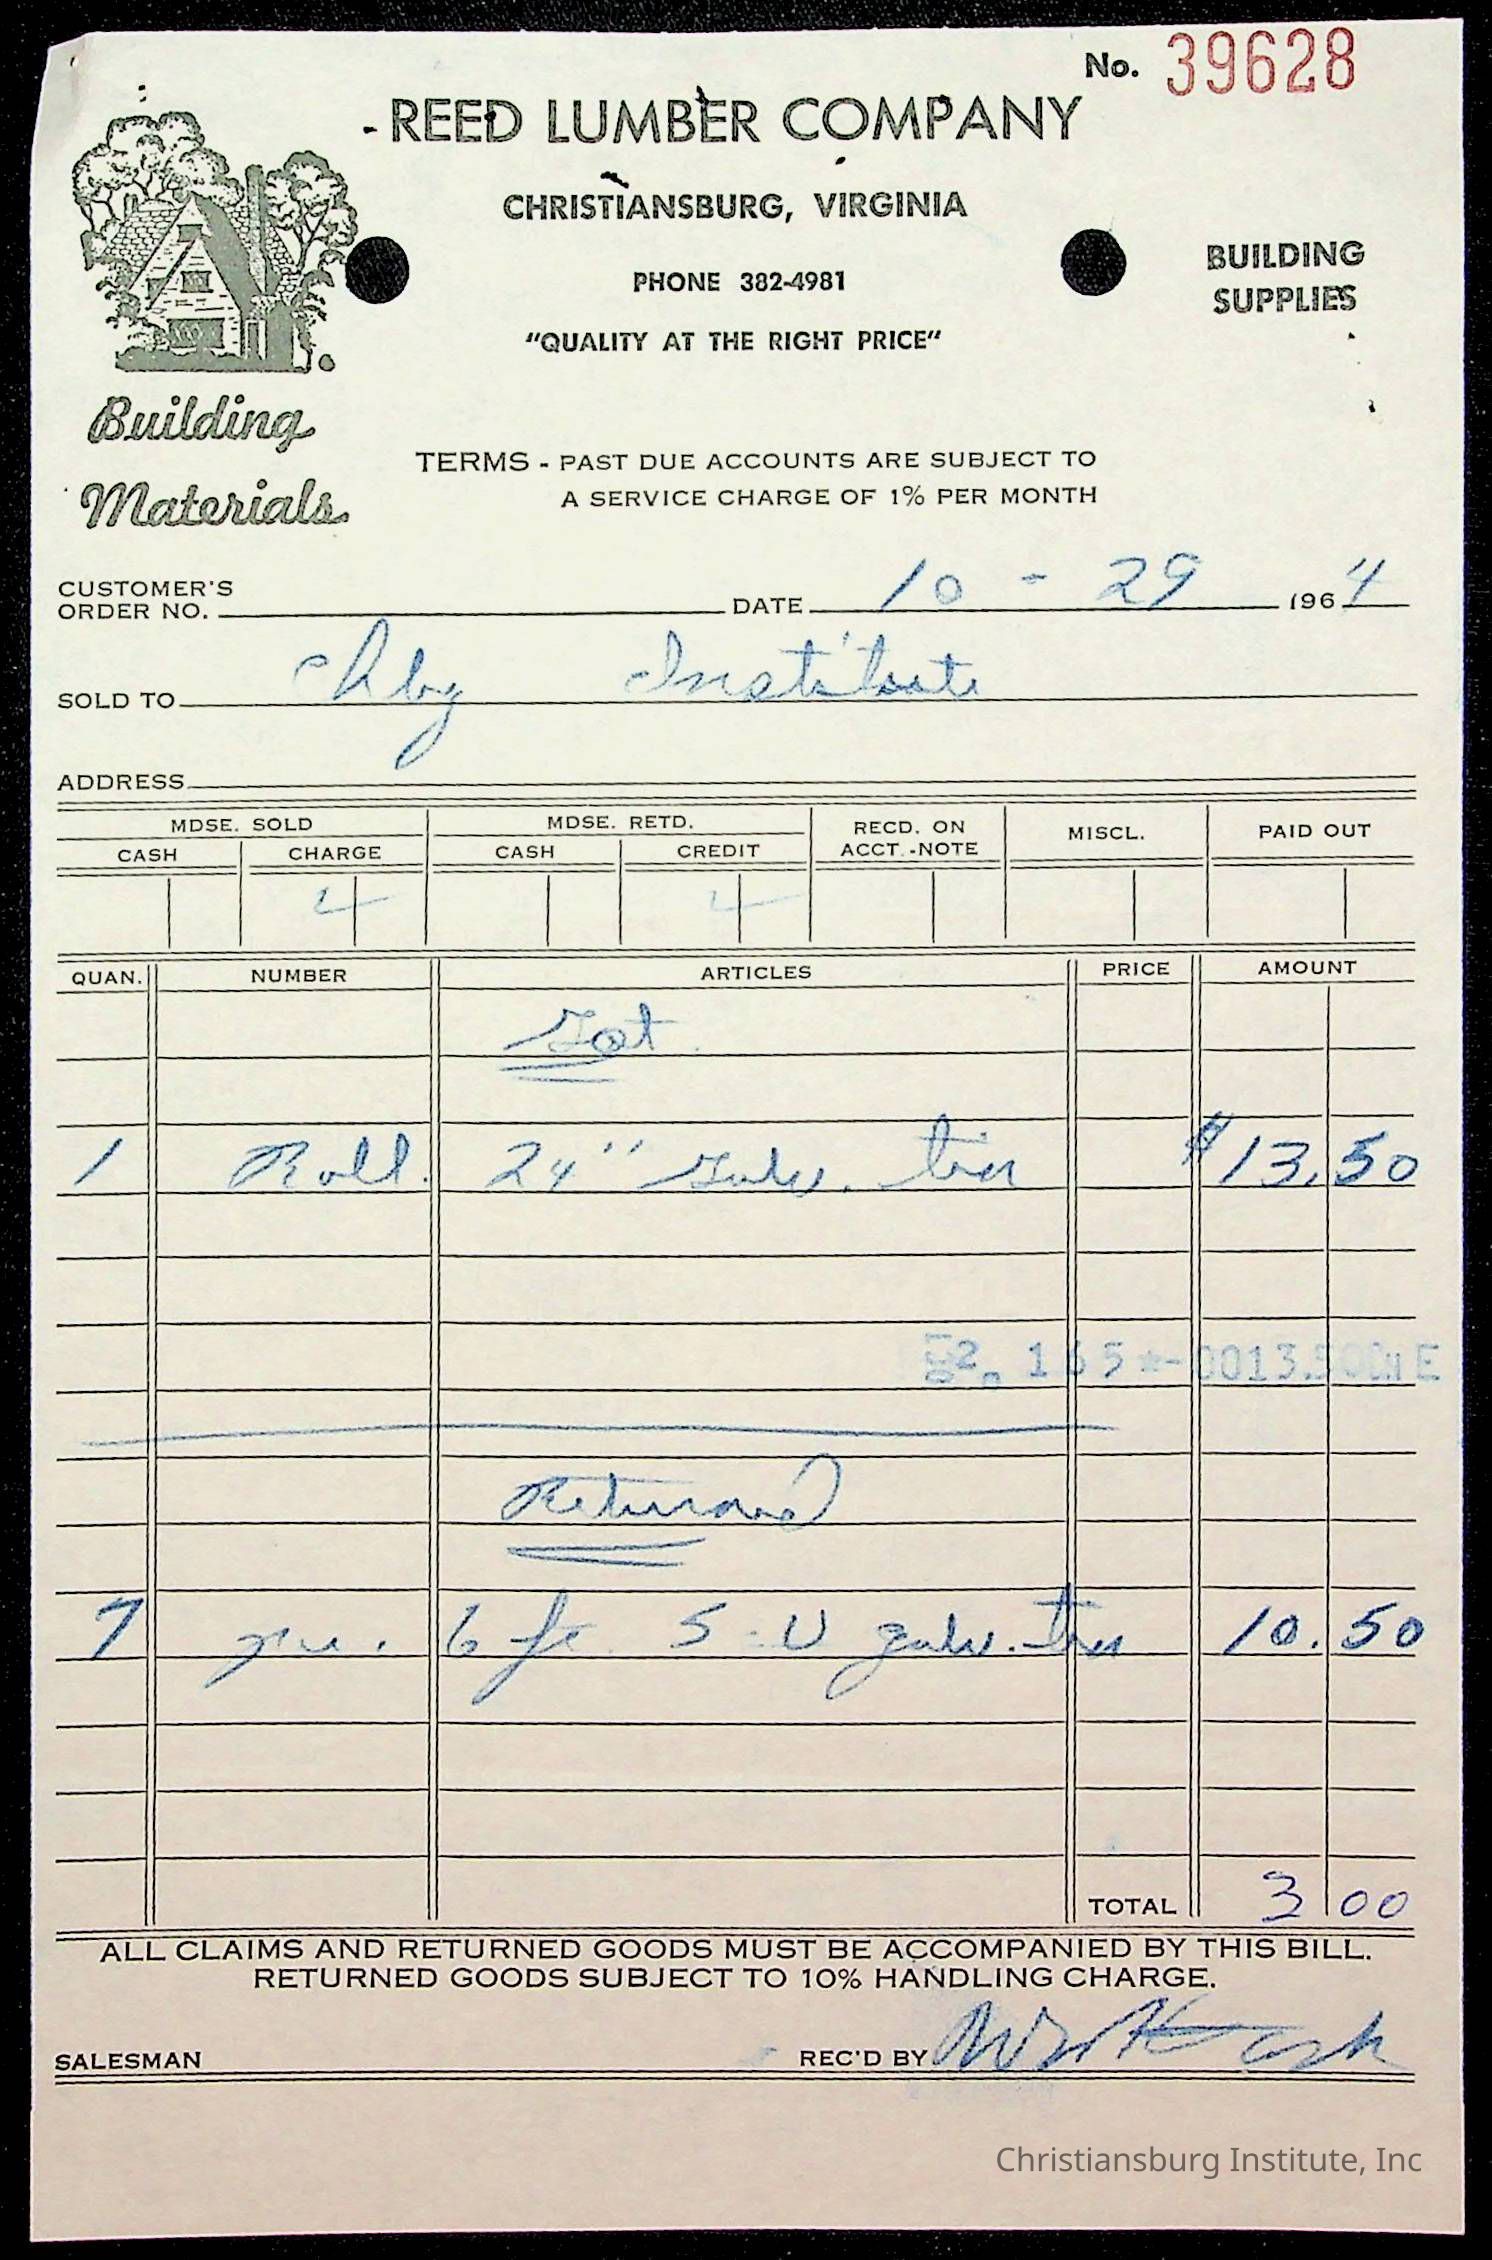 No. 39628
REED LUMBER COMPANY
CHRISTIANSBURG, VIRGINIA
PHONE 382-4981
"QUALITY AT THE RIGHT PRICE"
BUILDING
SUPPLIES
Building
Materials
TERMS - PAST DUE ACCOUNTS ARE SUBJECT TO
A SERVICE CHARGE OF 1% PER MONTH
CUSTOMER'S
ORDER NO. DATE 10 - 29 1964
SOLD TO Chbg Institute
ADDRESS
MDSE. SOLD MDSE. RETD. RECD. ON
ACCT.-NOTE MISCL. PAID OUT
CASH CHARGE CASH CREDIT
QUAN. NUMBER ARTICLES PRICE AMOUNT
Got
1 Roll. 24" Galv. tin $13.50
Returned
7 pcs. 6 ft. 5-V galv. tin 10.50
TOTAL 3 00
ALL CLAIMS AND RETURNED GOODS MUST BE ACCOMPANIED BY THIS BILL.
RETURNED GOODS SUBJECT TO 10% HANDLING CHARGE.
SALESMAN REC'D BY
Christiansburg Institute, Inc